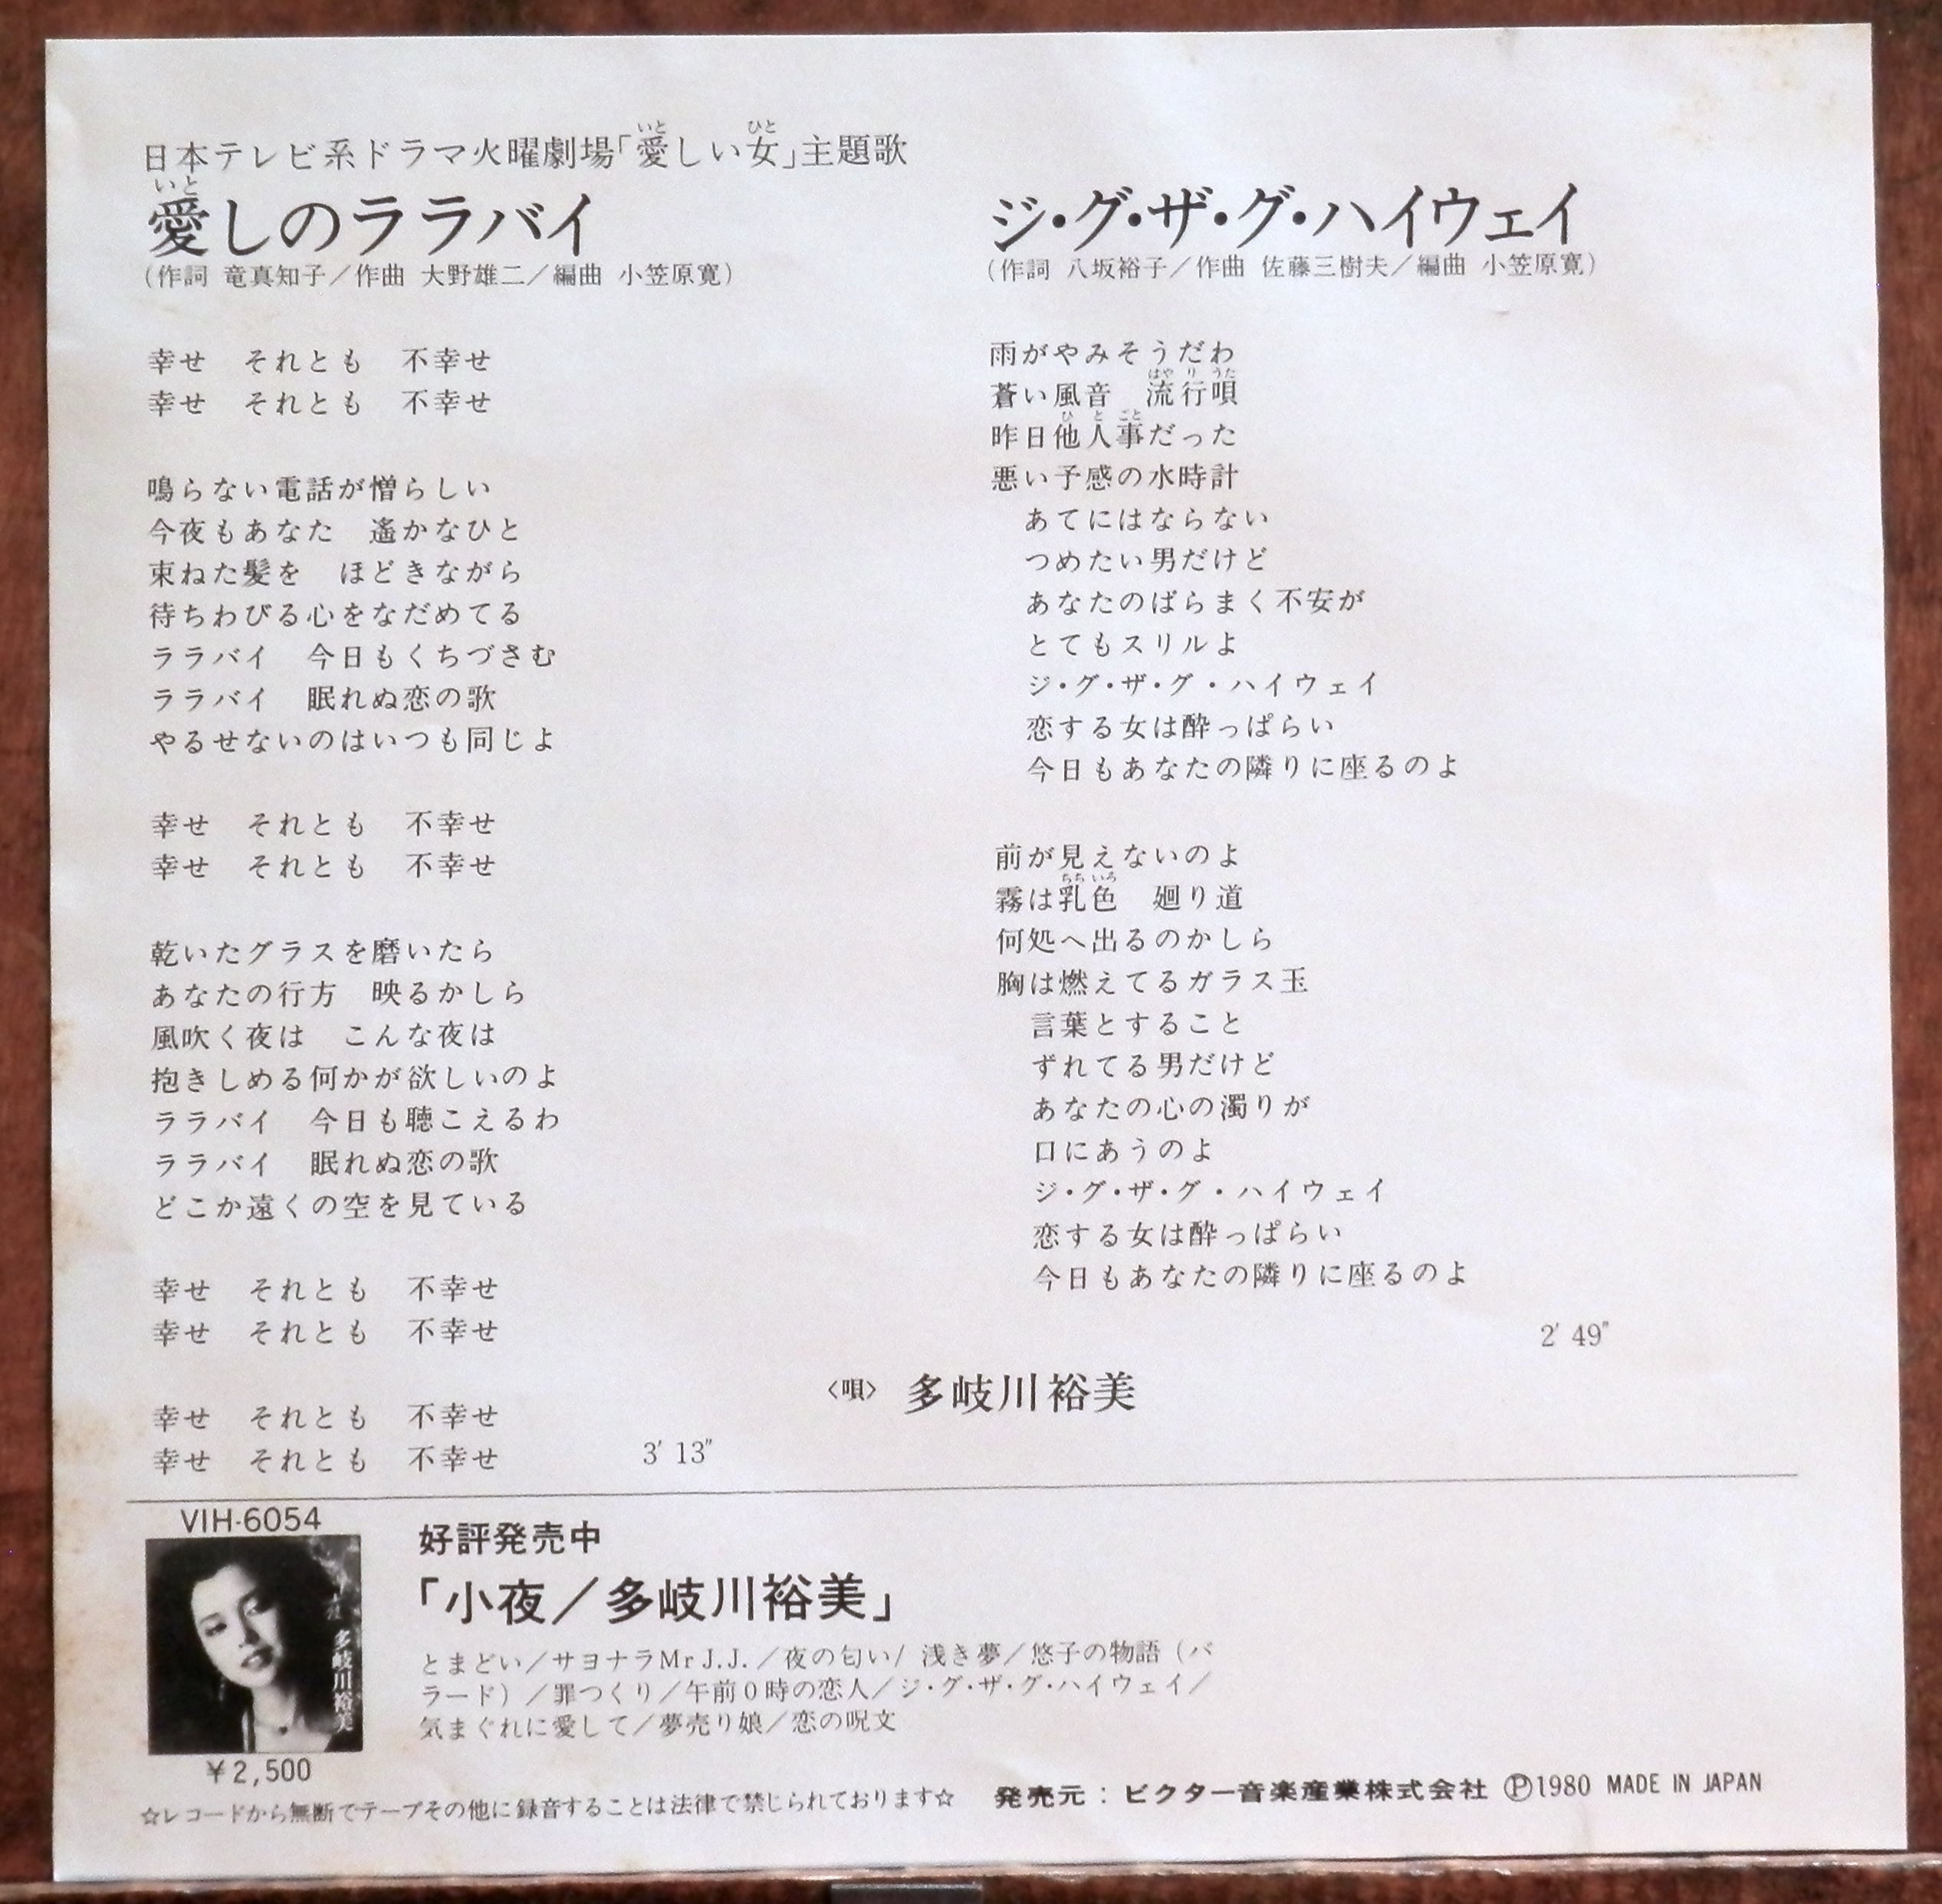 日本テレビ系ドラマ火曜劇場「愛しい女」主題歌
愛しのララバイ
(作詞 竜真知子／作曲 大野雄二／編曲 小笠原寛)
幸せ　それとも　不幸せ
幸せ　それとも　不幸せ
鳴らない電話が憎らしい
今夜もあなた　遙かなひと
束ねた髪を　ほどきながら
待ちわびる心をなだめてる
ララバイ　今日もくちづさむ
ララバイ　眠れぬ恋の歌
やるせないのはいつも同じよ
幸せ　それとも　不幸せ
幸せ　それとも　不幸せ
乾いたグラスを磨いたら
あなたの行方　映るかしら
風吹く夜は　こんな夜は
抱きしめる何かが欲しいのよ
ララバイ　今日も聴こえるわ
ララバイ　眠れぬ恋の歌
どこか遠くの空を見ている
幸せ　それとも　不幸せ
幸せ　それとも　不幸せ
幸せ　それとも　不幸せ
幸せ　それとも　不幸せ
3′ 13″
ジ・グ・ザ・グ・ハイウェイ
(作詞 八坂裕子／作曲 佐藤三樹夫／編曲 小笠原寛)
雨がやみそうだわ
蒼い風音　流行唄
昨日他人事だった
悪い予感の水時計
あてにはならない
つめたい男だけど
あなたのばらまく不安が
とてもスリルよ
ジ・グ・ザ・グ・ハイウェイ
恋する女は酔っぱらい
今日もあなたの隣りに座るのよ
前が見えないのよ
霧は乳色　廻り道
何処へ出るのかしら
胸は燃えてるガラス玉
言葉とすること
ずれてる男だけど
あなたの心の濁りが
口にあうのよ
ジ・グ・ザ・グ・ハイウェイ
恋する女は酔っぱらい
今日もあなたの隣りに座るのよ
2′ 49″
〈唄〉 多岐川裕美
VIH-6054
多岐川裕美
¥2,500
好評発売中
「小夜／多岐川裕美」
とまどい／サヨナラMr J.J.／夜の匂い/ 浅き夢／悠子の物語（バ
ラード）／罪つくり／午前0時の恋人／ジ・グ・ザ・グ・ハイウェイ／
気まぐれに愛して／夢売り娘／恋の呪文
☆レコードから無断でテープその他に録音することは法律で禁じられております☆
発売元：ビクター音楽産業株式会社 Ⓟ1980 MADE IN JAPAN